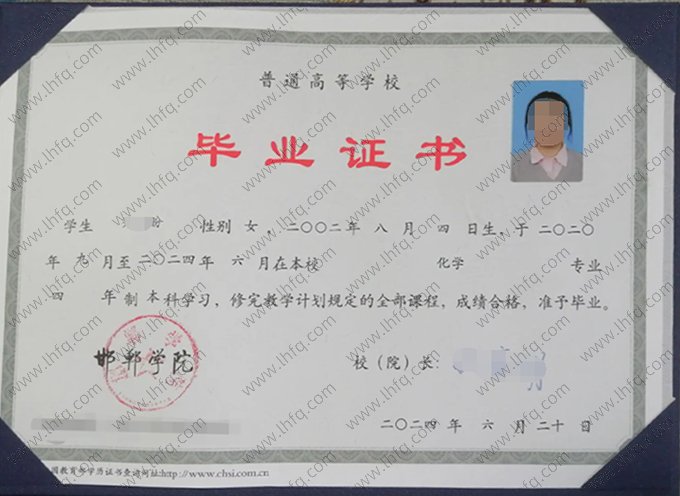 普通高等学校
毕业证书
学生 份 性别 女，二〇〇二年 八 月 四 日生，于 二〇二〇
年 九 月至 二〇二四年 六 月在本校 化学 专业
四 年制 本科学习，修完教学计划规定的全部课程，成绩合格，准予毕业。
邯郸学院
校（院）长：
二〇二四年 六 月二十日
国教育部学历证书查询网址:http://www.chsi.com.cn
www.lhfq.com